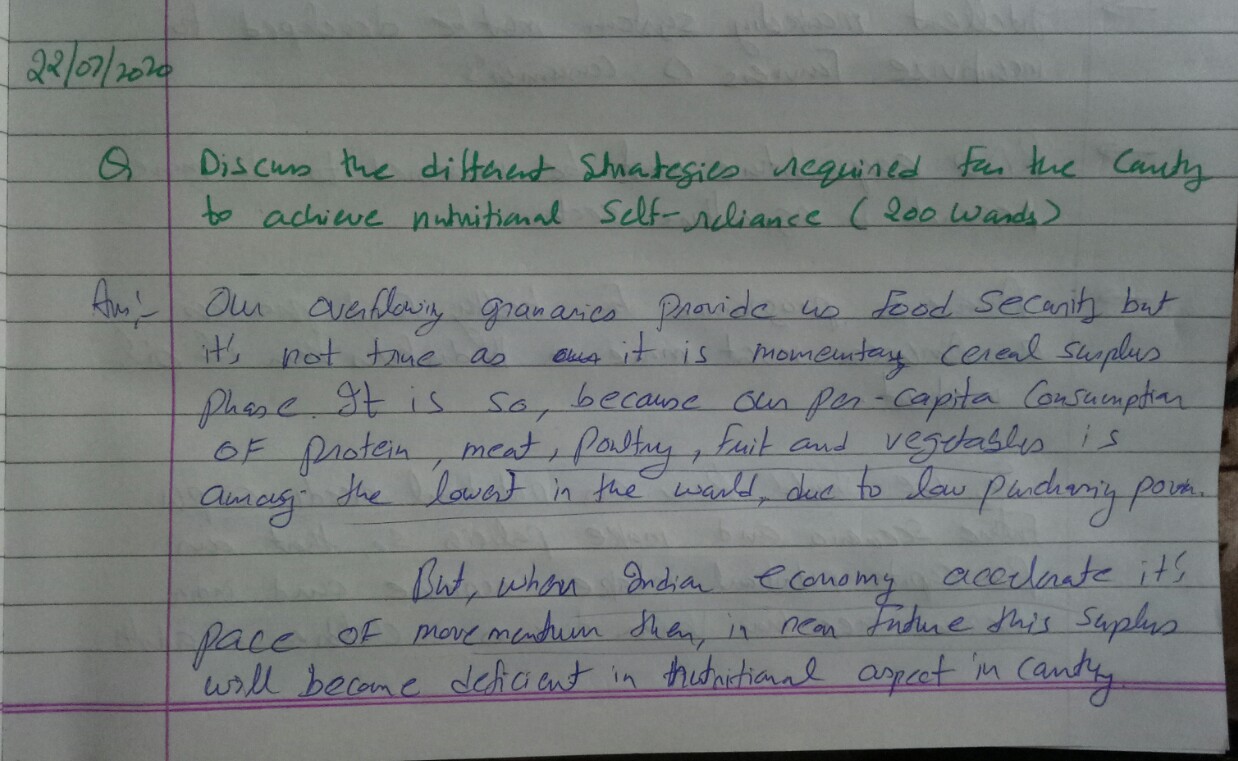 22/07/2020
Q Discuss the different Strategies required for the Country
to achieve nutritional Self-reliance (200 words)
Ans:- Our overflowing granaries provide us food security but
it's not true as it is momentary cereal surplus
phase. It is so, because our per-capita Consumption
of protein, meat, poultry, fruit and vegetables is
among the lowest in the world, due to low purchasing power.
But, when Indian economy accelerate it's
pace of movementum then, in near future this surplus
will become deficient in nutritional aspect in country.